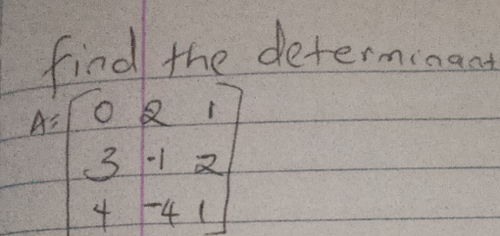 find the determinant
A= [ 0 2 1
3 -1 2
4 -4 1 ]